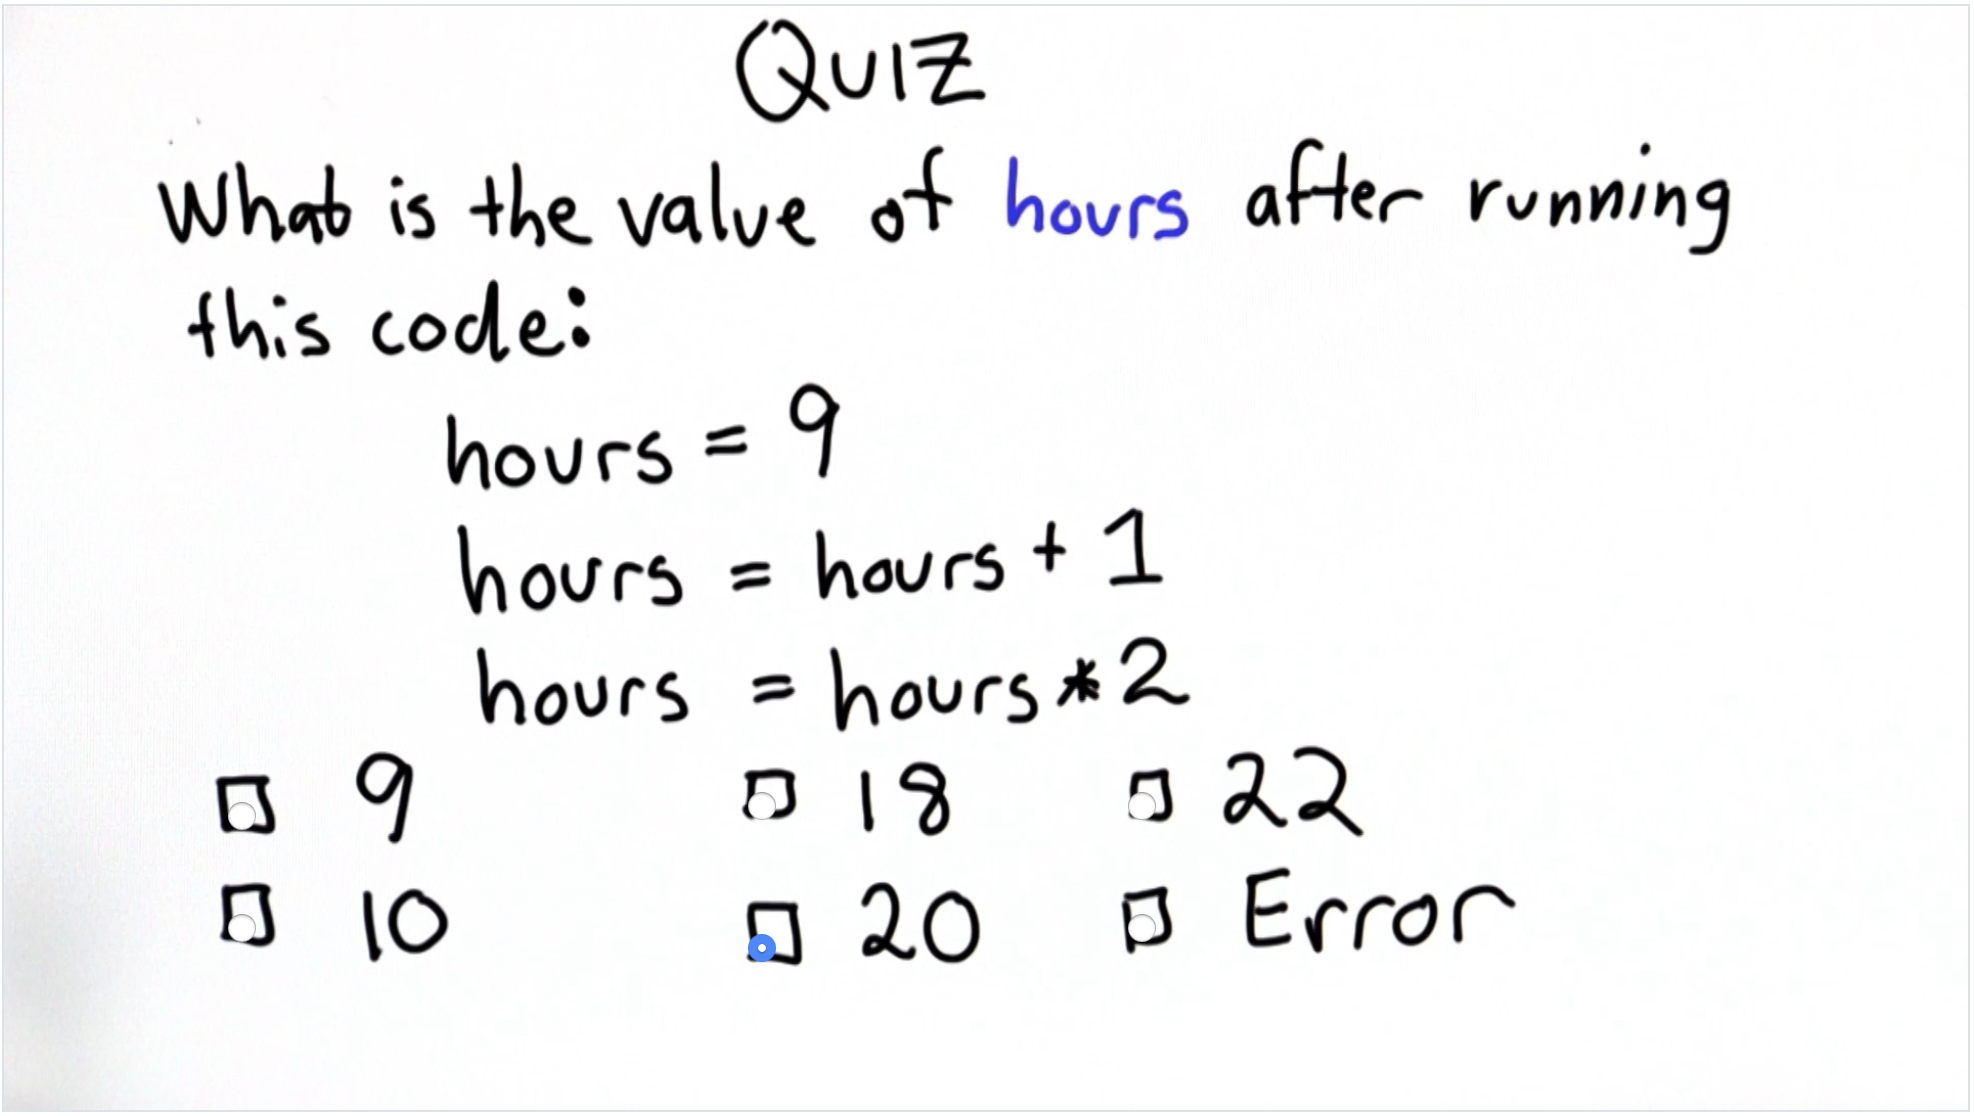 QUIZ
What is the value of hours after running
this code:
hours = 9
hours = hours + 1
hours = hours * 2
9 18 22
10 20 Error